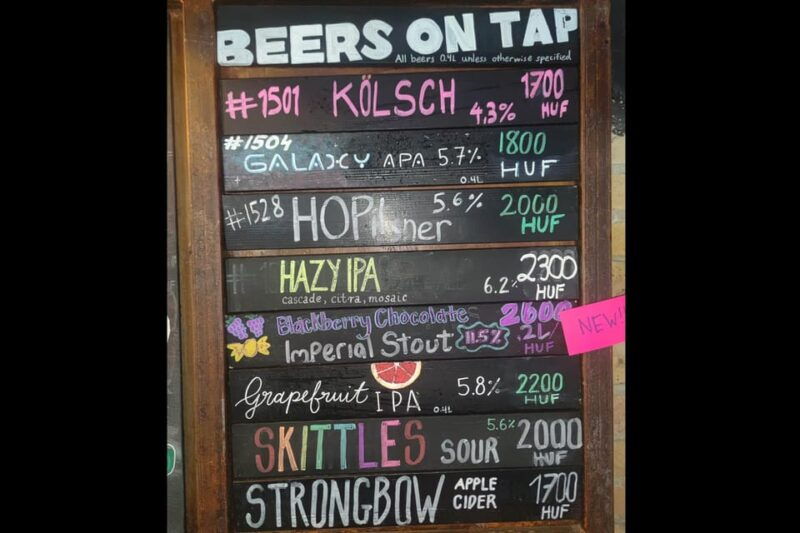 BEERS ON TAP
All beers 0.4L unless otherwise specified
#1501 KÖLSCH 4,3% 1700 HUF
#1504 GALAXY APA 5.7% 0.4L 1800 HUF
#1528 HOPilsner 5.6% 2000 HUF
HAZY IPA 6.2% 2300 HUF
cascade, citra, mosaic
Blackberry Chocolate 2600
Imperial Stout 11.5% .2L HUF
NEW!
Grapefruit IPA 0.4L 5.8% 2200 HUF
SKITTLES SOUR 5.6% 2000 HUF
STRONGBOW APPLE CIDER 1700 HUF